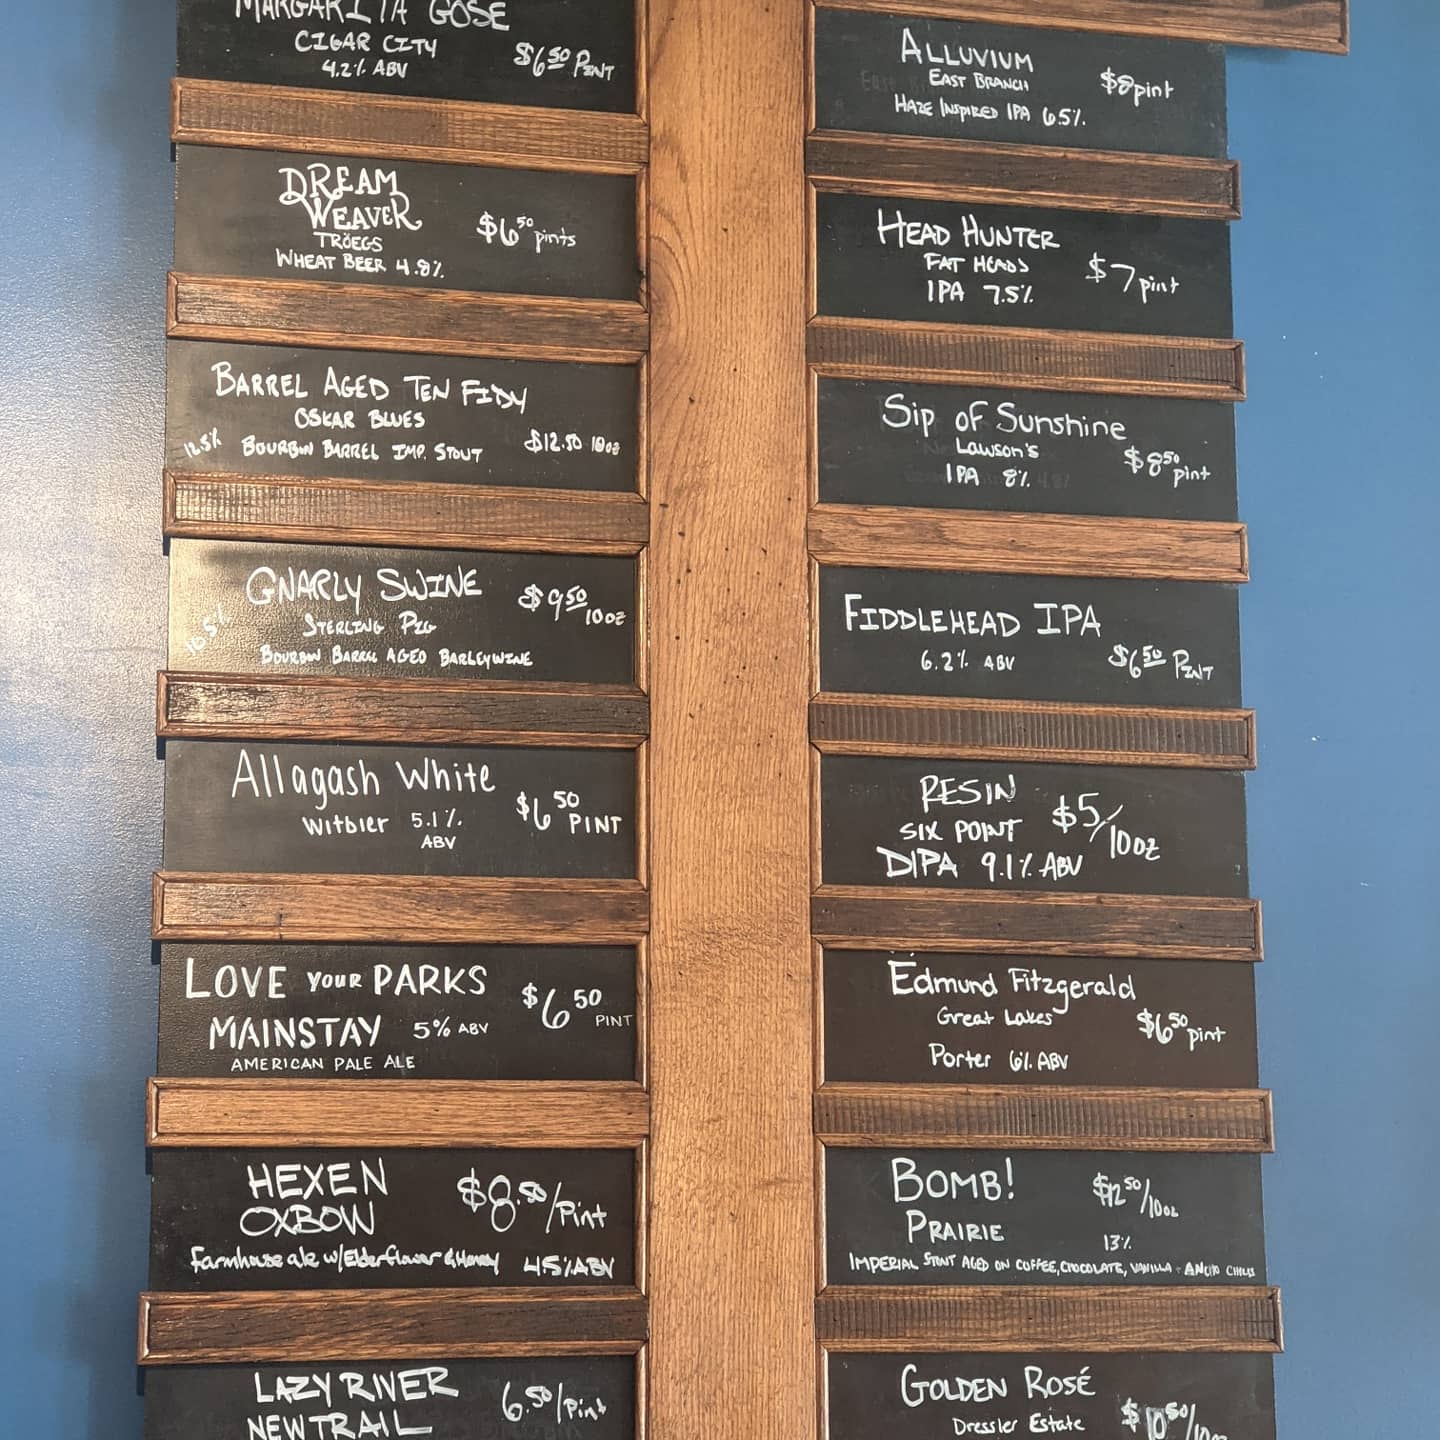 MARGARITA GOSE
CIGAR CITY
4.2% ABV
$6.50 PINT
DREAM
WEAVER
TRÖEGS
WHEAT BEER 4.8%
$6.50 pints
BARREL AGED TEN FIDY
OSKAR BLUES
12.5% BOURBON BARREL IMP. STOUT
$12.50 10oz
GNARLY SWINE
STERLING PIG
BOURBON BARREL AGED BARLEYWINE
$9.50 10oz
Allagash White
Witbier 5.1%
ABV
$6.50 PINT
LOVE YOUR PARKS
MAINSTAY 5% ABV
AMERICAN PALE ALE
$6.50
PINT
HEXEN
OXBOW
$8.50/Pint
farmhouse ale w/Elderflower & Honey 4.5% ABV
LAZY RIVER
NEW TRAIL
6.50/Pint
ALLUVIUM
EAST BRANCH
HAZE INSPIRED IPA 6.5%
$8 pint
HEAD HUNTER
FAT HEADS
IPA 7.5%
$7 pint
Sip of Sunshine
Lawson's
IPA 8%
$8.50 pint
FIDDLEHEAD IPA
6.2% ABV
$6.50 PINT
RESIN
SIX POINT
DIPA 9.1% ABV
$5/10oz
Edmund Fitzgerald
Great Lakes
Porter 6% ABV
$6.50 pint
BOMB!
PRAIRIE
$12.50/10oz
13%
IMPERIAL STOUT AGED ON COFFEE, CHOCOLATE, VANILLA + ANCHO CHILIS
GOLDEN ROSÉ
Dressler Estate
$10.50/10oz